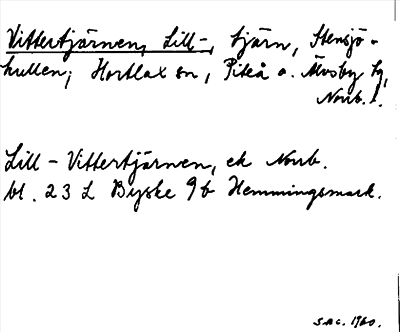 Vittertjärnen, Lill-, tjärn, Stensjö-
kullen; Hortlax sn, Piteå o. Älvsby tg,
Norrb. l.
Lill-Vittertjärnen, ek Norrb.
bl. 23 L Byske 9b Hemmingsmark.
SAC. 1960.